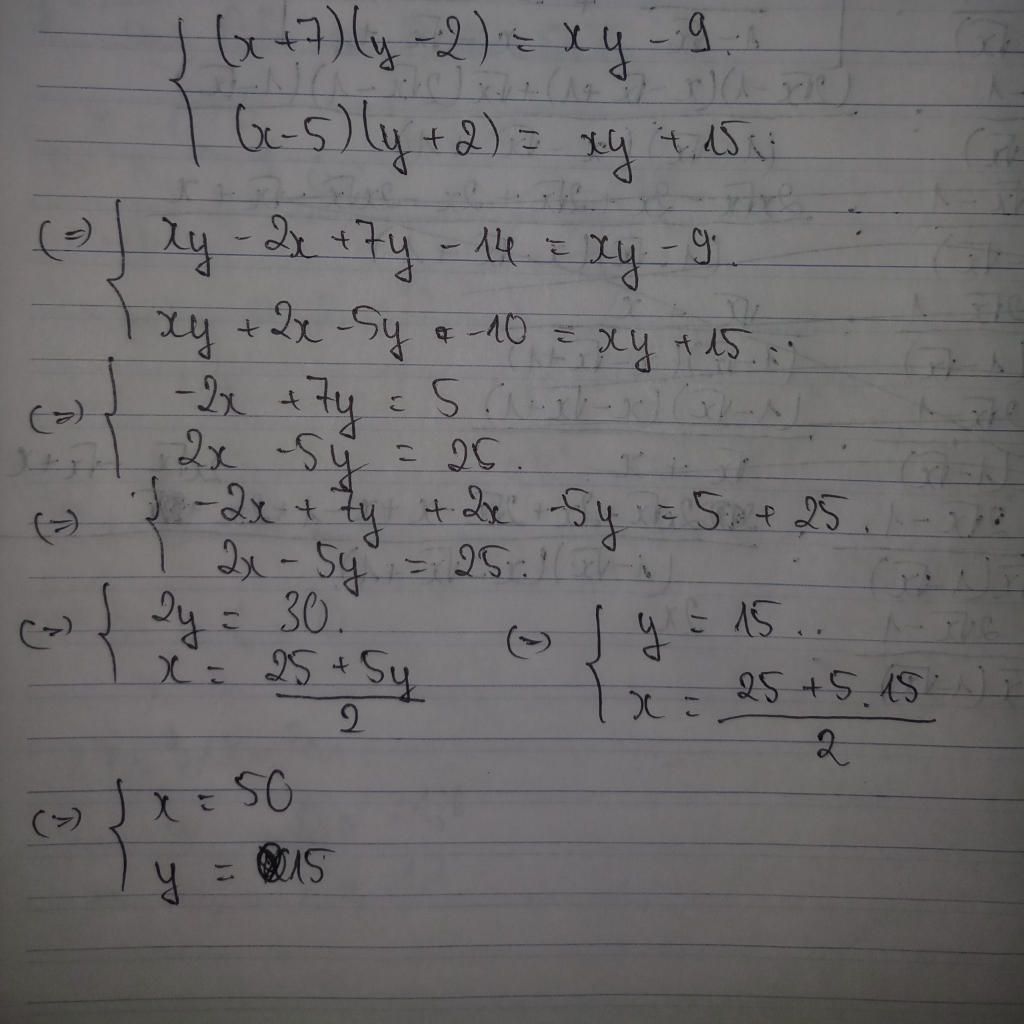 { (x+7)(y-2) = xy - 9.
(x-5)(y+2) = xy + 15.
(=) { xy - 2x + 7y - 14 = xy - 9.
xy + 2x - 5y - 10 = xy + 15.
(=) { -2x + 7y = 5.
2x - 5y = 25.
(=) { -2x + 7y + 2x - 5y = 5 + 25.
2x - 5y = 25.
(=) { 2y = 30. (=) { y = 15..
x = (25 + 5y)/2 x = (25 + 5.15)/2
(=) { x = 50
y = 15